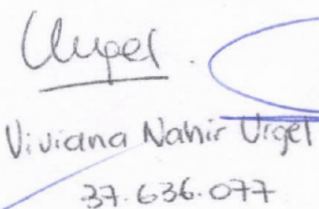 Urgel
Viviana Nahir Urgel
37.636.077